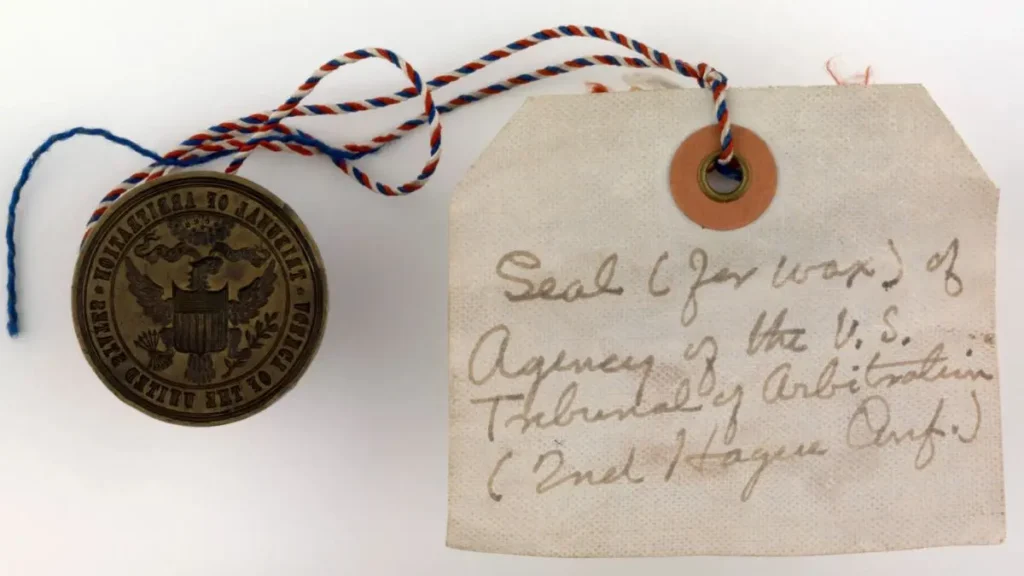 Seal (for wax) of
Agency of the U.S.
Tribunal of Arbitration
(2nd Hague Conf.)
AGENCY OF THE UNITED STATES • TRIBUNAL OF ARBITRATION •